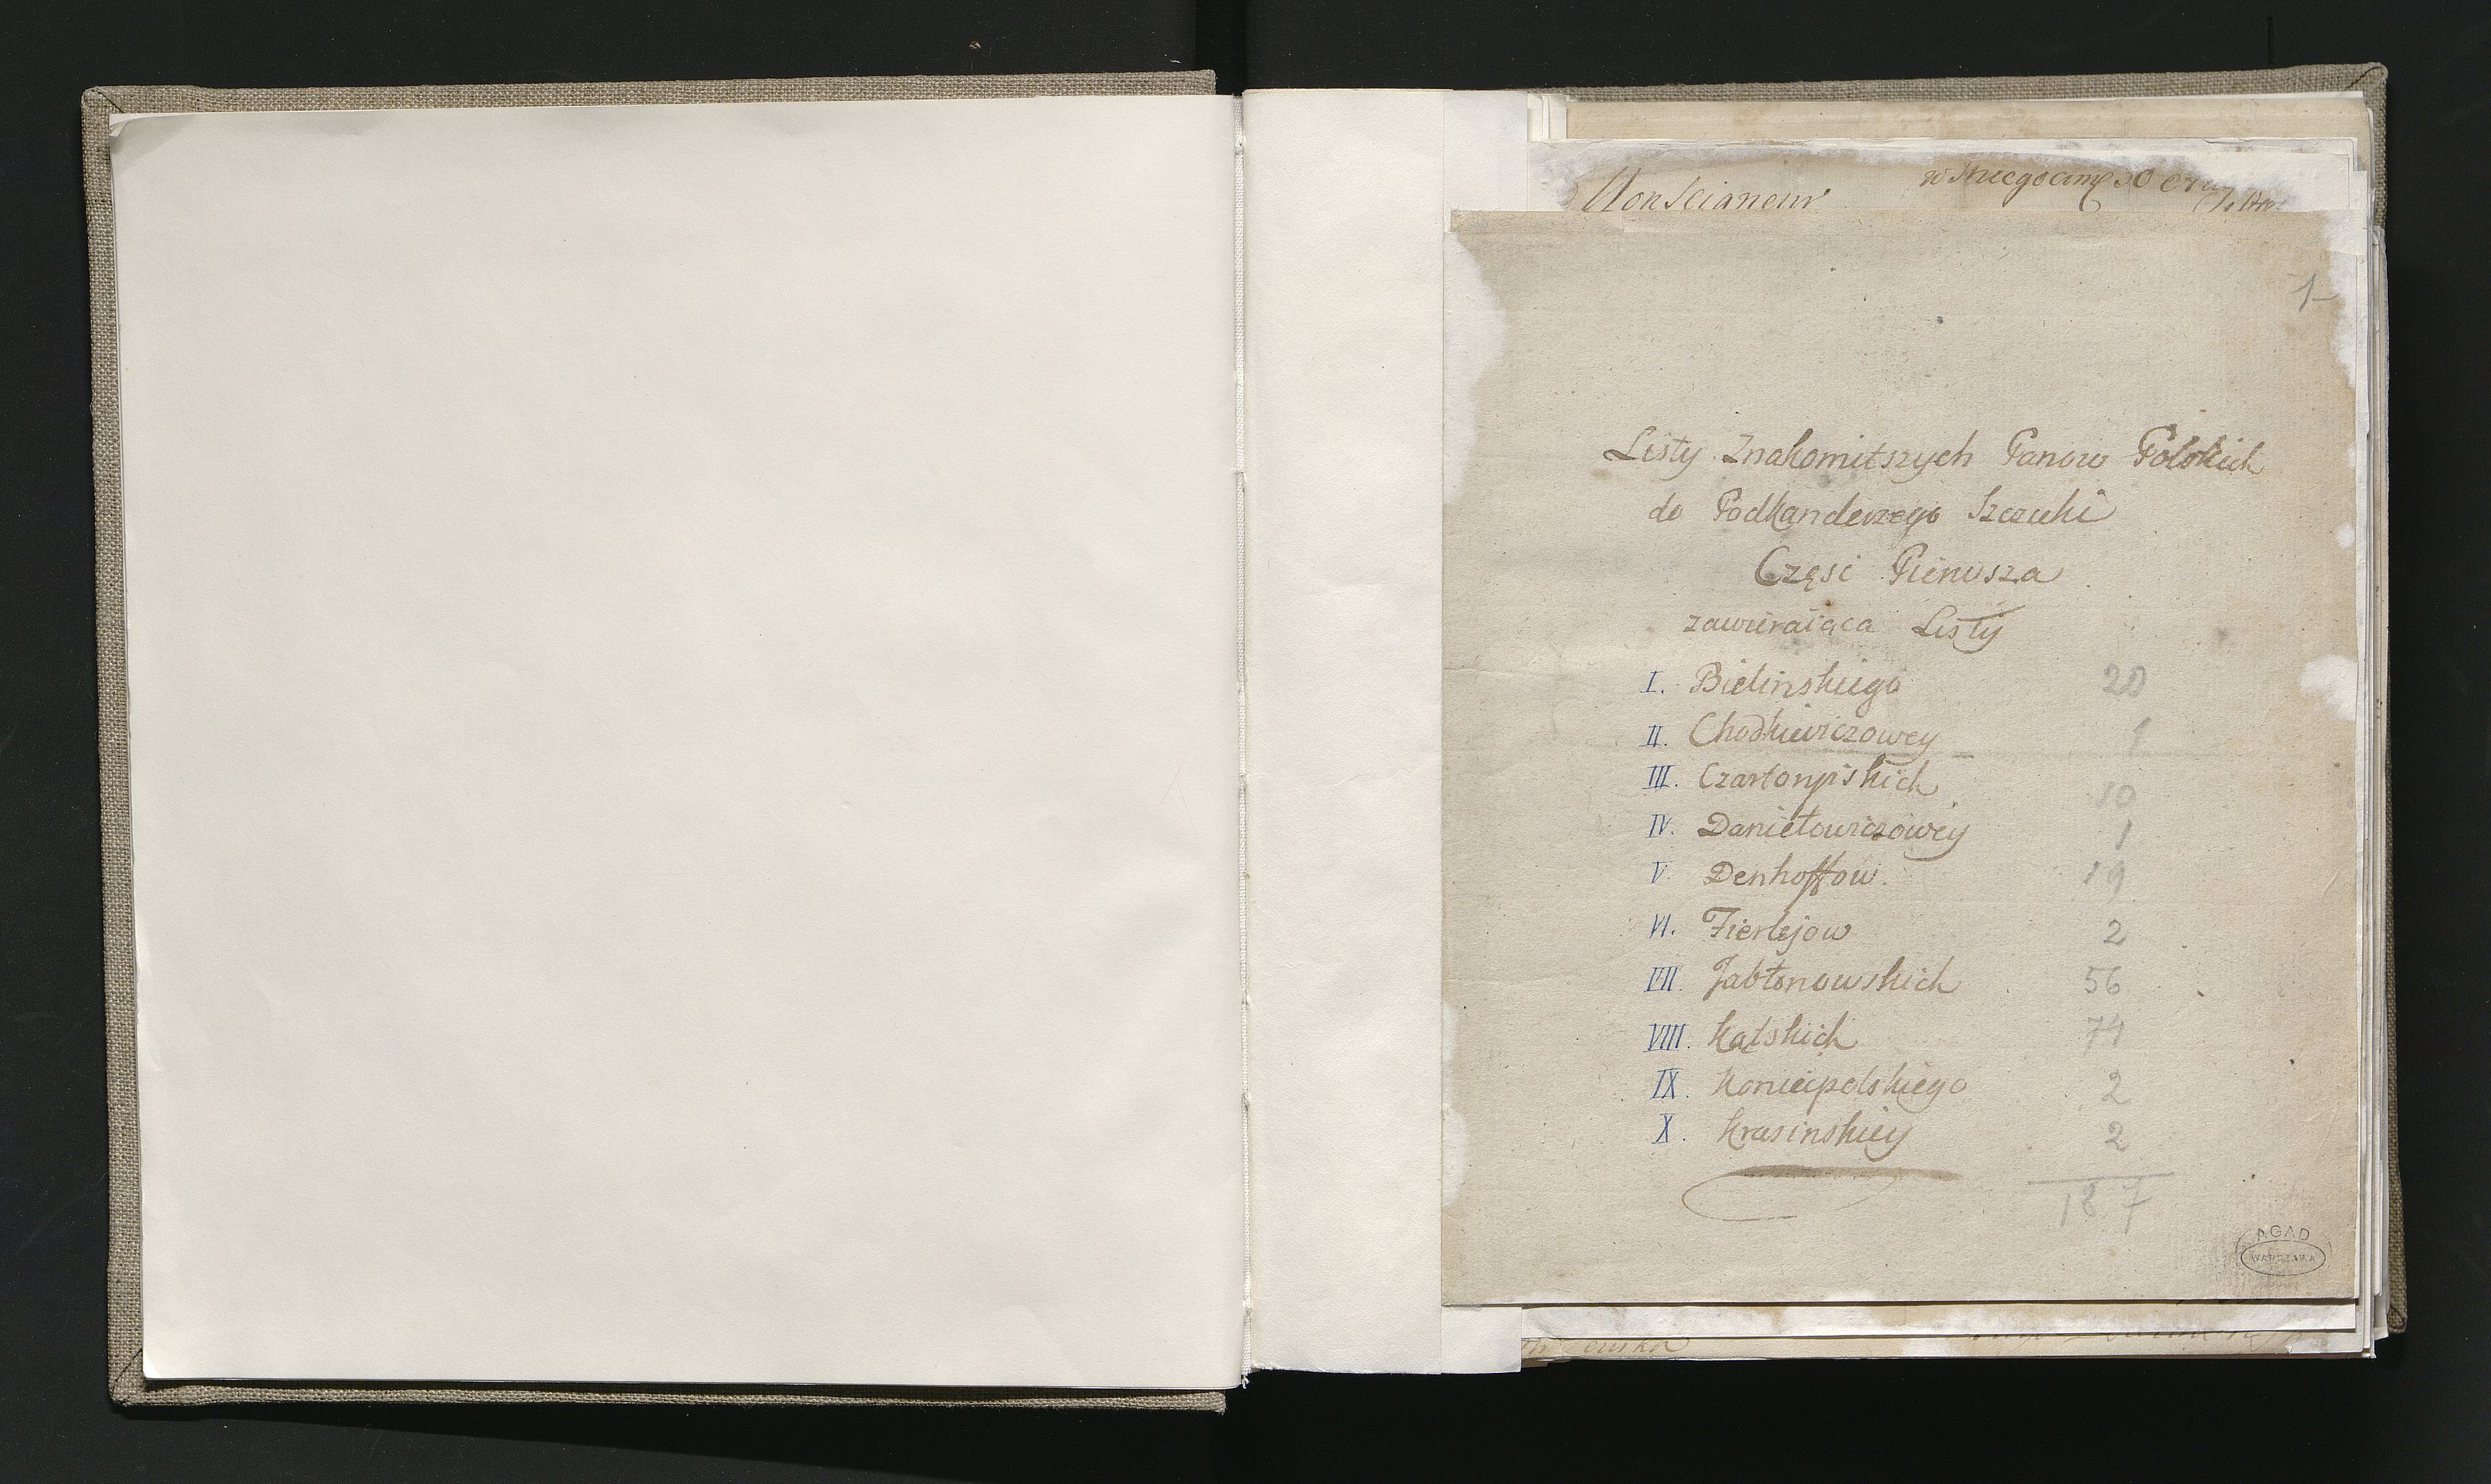 Monseigneur
1
Listy Znakomitszych Panow Polskich
do Podkanclerzego Szczuki
Częsc Pierwsza
zawieraiąca Listy
I. Bielinskiego 20
II. Chodkiewiczowey 1
III. Czartoryiskich 10
IV. Daniełowiczowey 1
V. Denhoffow. 19
VI. Fierlejow 2
VII. Jabłonowskich 56
VIII. Kątskich 74
IX. Koniecpolskiego 2
X. Krasinskiey 2
187
AGAD
WARSZAWA